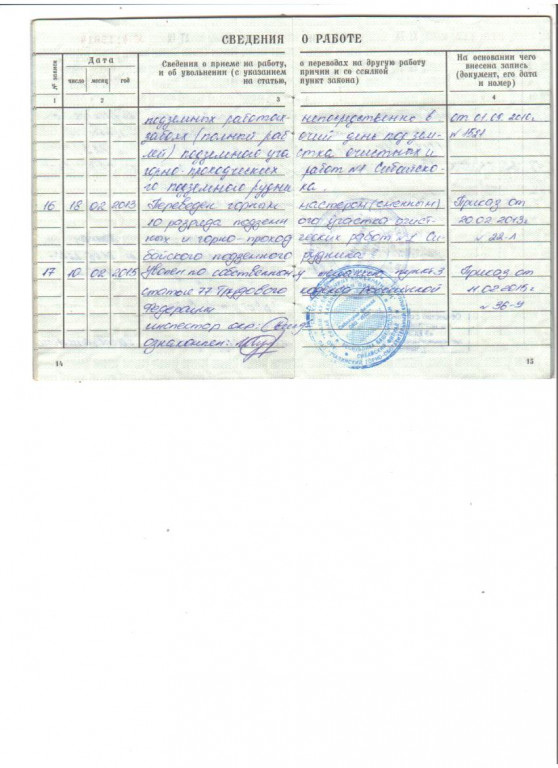 СВЕДЕНИЯ О РАБОТЕ
№ записи
Дата
Сведения о приеме на работу, о переводах на другую работу
и об увольнении (с указанием причин и со ссылкой
на статью, пункт закона)
На основании чего
внесена запись
(документ, его дата
и номер)
число месяц год
1 2 3 4
подземных работах непосредственно в от 01.09.2010г
забоях (полный рабочий день под зем- № 1521
лей) подземного участка очистных и
горно-проходческих работ №1 Сибайско-
го подземного рудника.
16 18 02 2013 Переведен горным мастером (сменным) Приказ от
10 разряда подземного участка очист- 20.02.2013г
ных и горно-проходческих работ №1 Си- № 22-Л
байского подземного рудника
17 10 02 2015 Уволен по собственному желанию, пункт 3 Приказ от
статьи 77 Трудового кодекса Российской 11.02.2015г
Федерации № 96-У
инспектор окр:
ознакомлен:
14 15